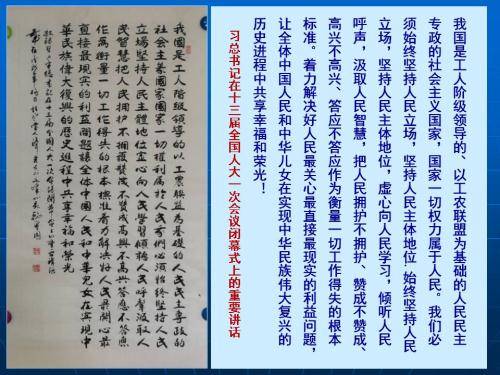 我国是工人阶级领导的、以工农联盟为基础的人民民主
专政的社会主义国家，国家一切权力属于人民。我们必
须始终坚持人民立场，坚持人民主体地位 始终坚持人民
立场，坚持人民主体地位，虚心向人民学习，倾听人民
呼声，汲取人民智慧，把人民拥护不拥护、赞成不赞成、
高兴不高兴、答应不答应作为衡量一切工作得失的根本
标准。着力解决好人民最关心最直接最现实的利益问题，
让全体中国人民和中华儿女在实现中华民族伟大复兴的
历史进程中共享幸福和荣光！
习总书记在十三届全国人大一次会议闭幕式上的重要讲话
我國是工人階級領導的以工農聯盟為基礎的人民民主專政的
社會主義國家國家一切權利屬於人民我們必須始終堅持人民
立場堅持人民主體地位虛心向人民學習傾聽人民呼聲汲取人
民智慧把人民擁护不擁護贊成不贊成高興不高興答應不答應
作為衡量一切工作得失的根本標准着力解决好人民最關心最
直接最現實的利益問題讓全体中國人民和中華兒女在實現中
華民族偉大復興的歷史進程中共享幸福和榮光